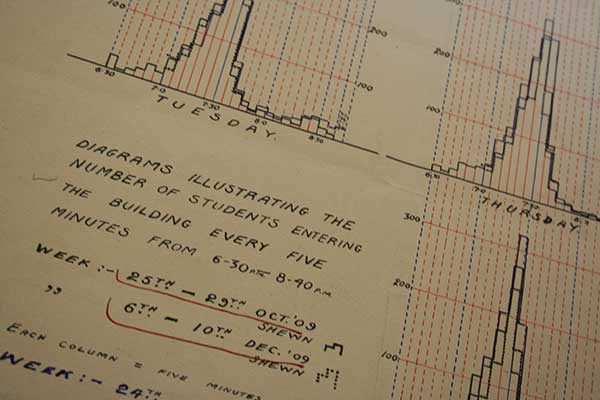 100
200
100
6·30
7·0
7·30
8·0
8·30
TUESDAY.
300
200
100
6·30
7·0
7·30
8·0
THURSDAY
DIAGRAMS ILLUSTRATING THE
NUMBER OF STUDENTS ENTERING
THE BUILDING EVERY FIVE
MINUTES FROM 6-30 PM – 8-40 P.M.
WEEK :- 25TH — 29TH OCT. '09
SHEWN
„ 6TH — 10TH DEC. '09
SHEWN
EACH COLUMN = FIVE MINUTES
WEEK:- 24TH
300
200
100